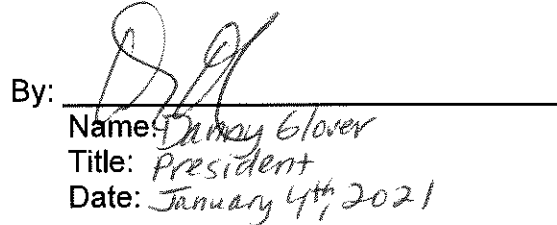 By:
Name: Danny Glover
Title: President
Date: January 4th, 2021